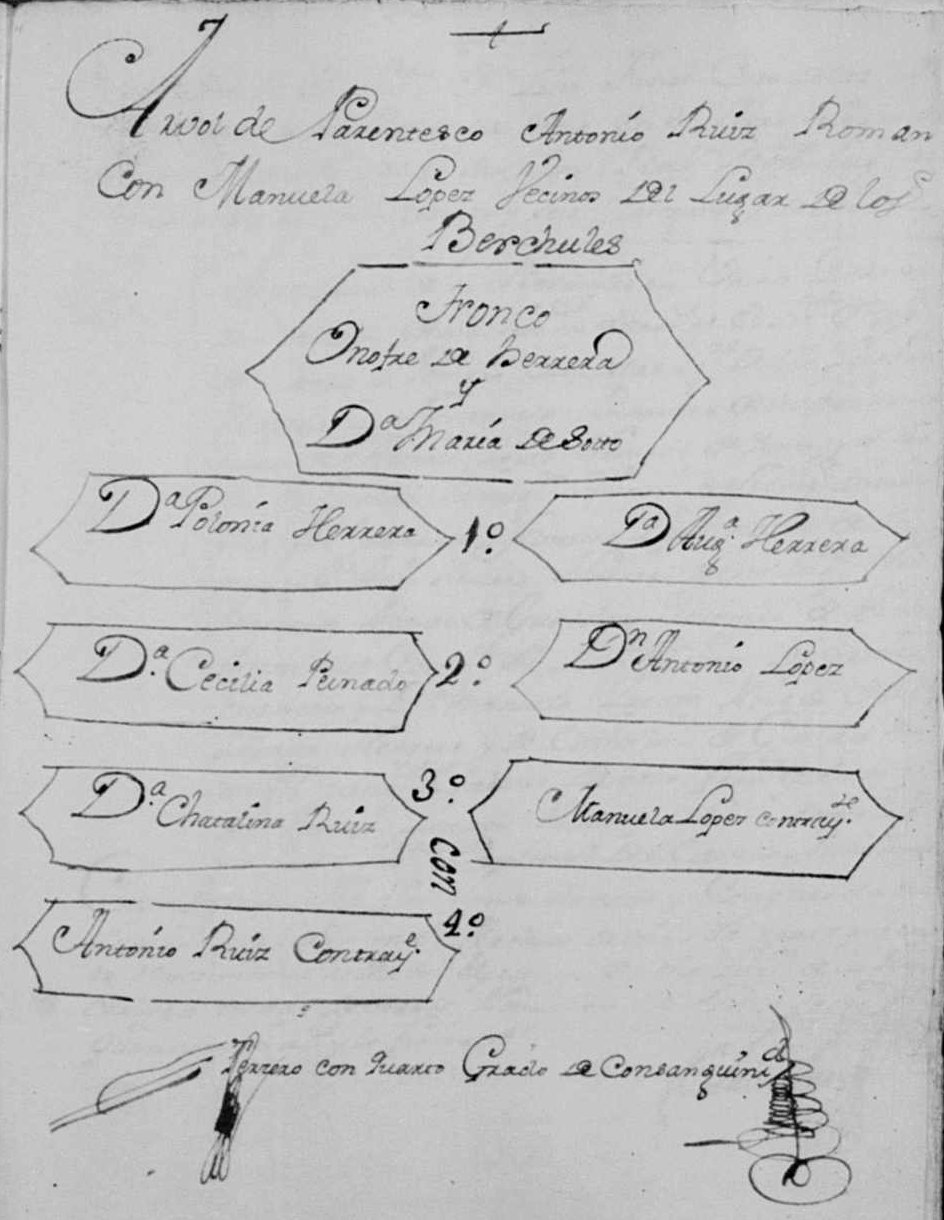 Arvol de Parentesco Antonio Ruiz Roman
Con Manuela Lopez Vecinos del Lugar de los
Berchules
Tronco
Onofre de herrera
y
Dª Maria de Soto
Dª Polonia Herrera 1º. Dª Augª. Herrera
Dª. Cecilia Peinado 2º. Dn Antonio Lopez
Dª. Chatalina Ruiz 3º. Manuela Lopez contrayte.
Con
Antonio Ruiz Contraye. 4º.
Terzero con quarto Grado de Consanguinid